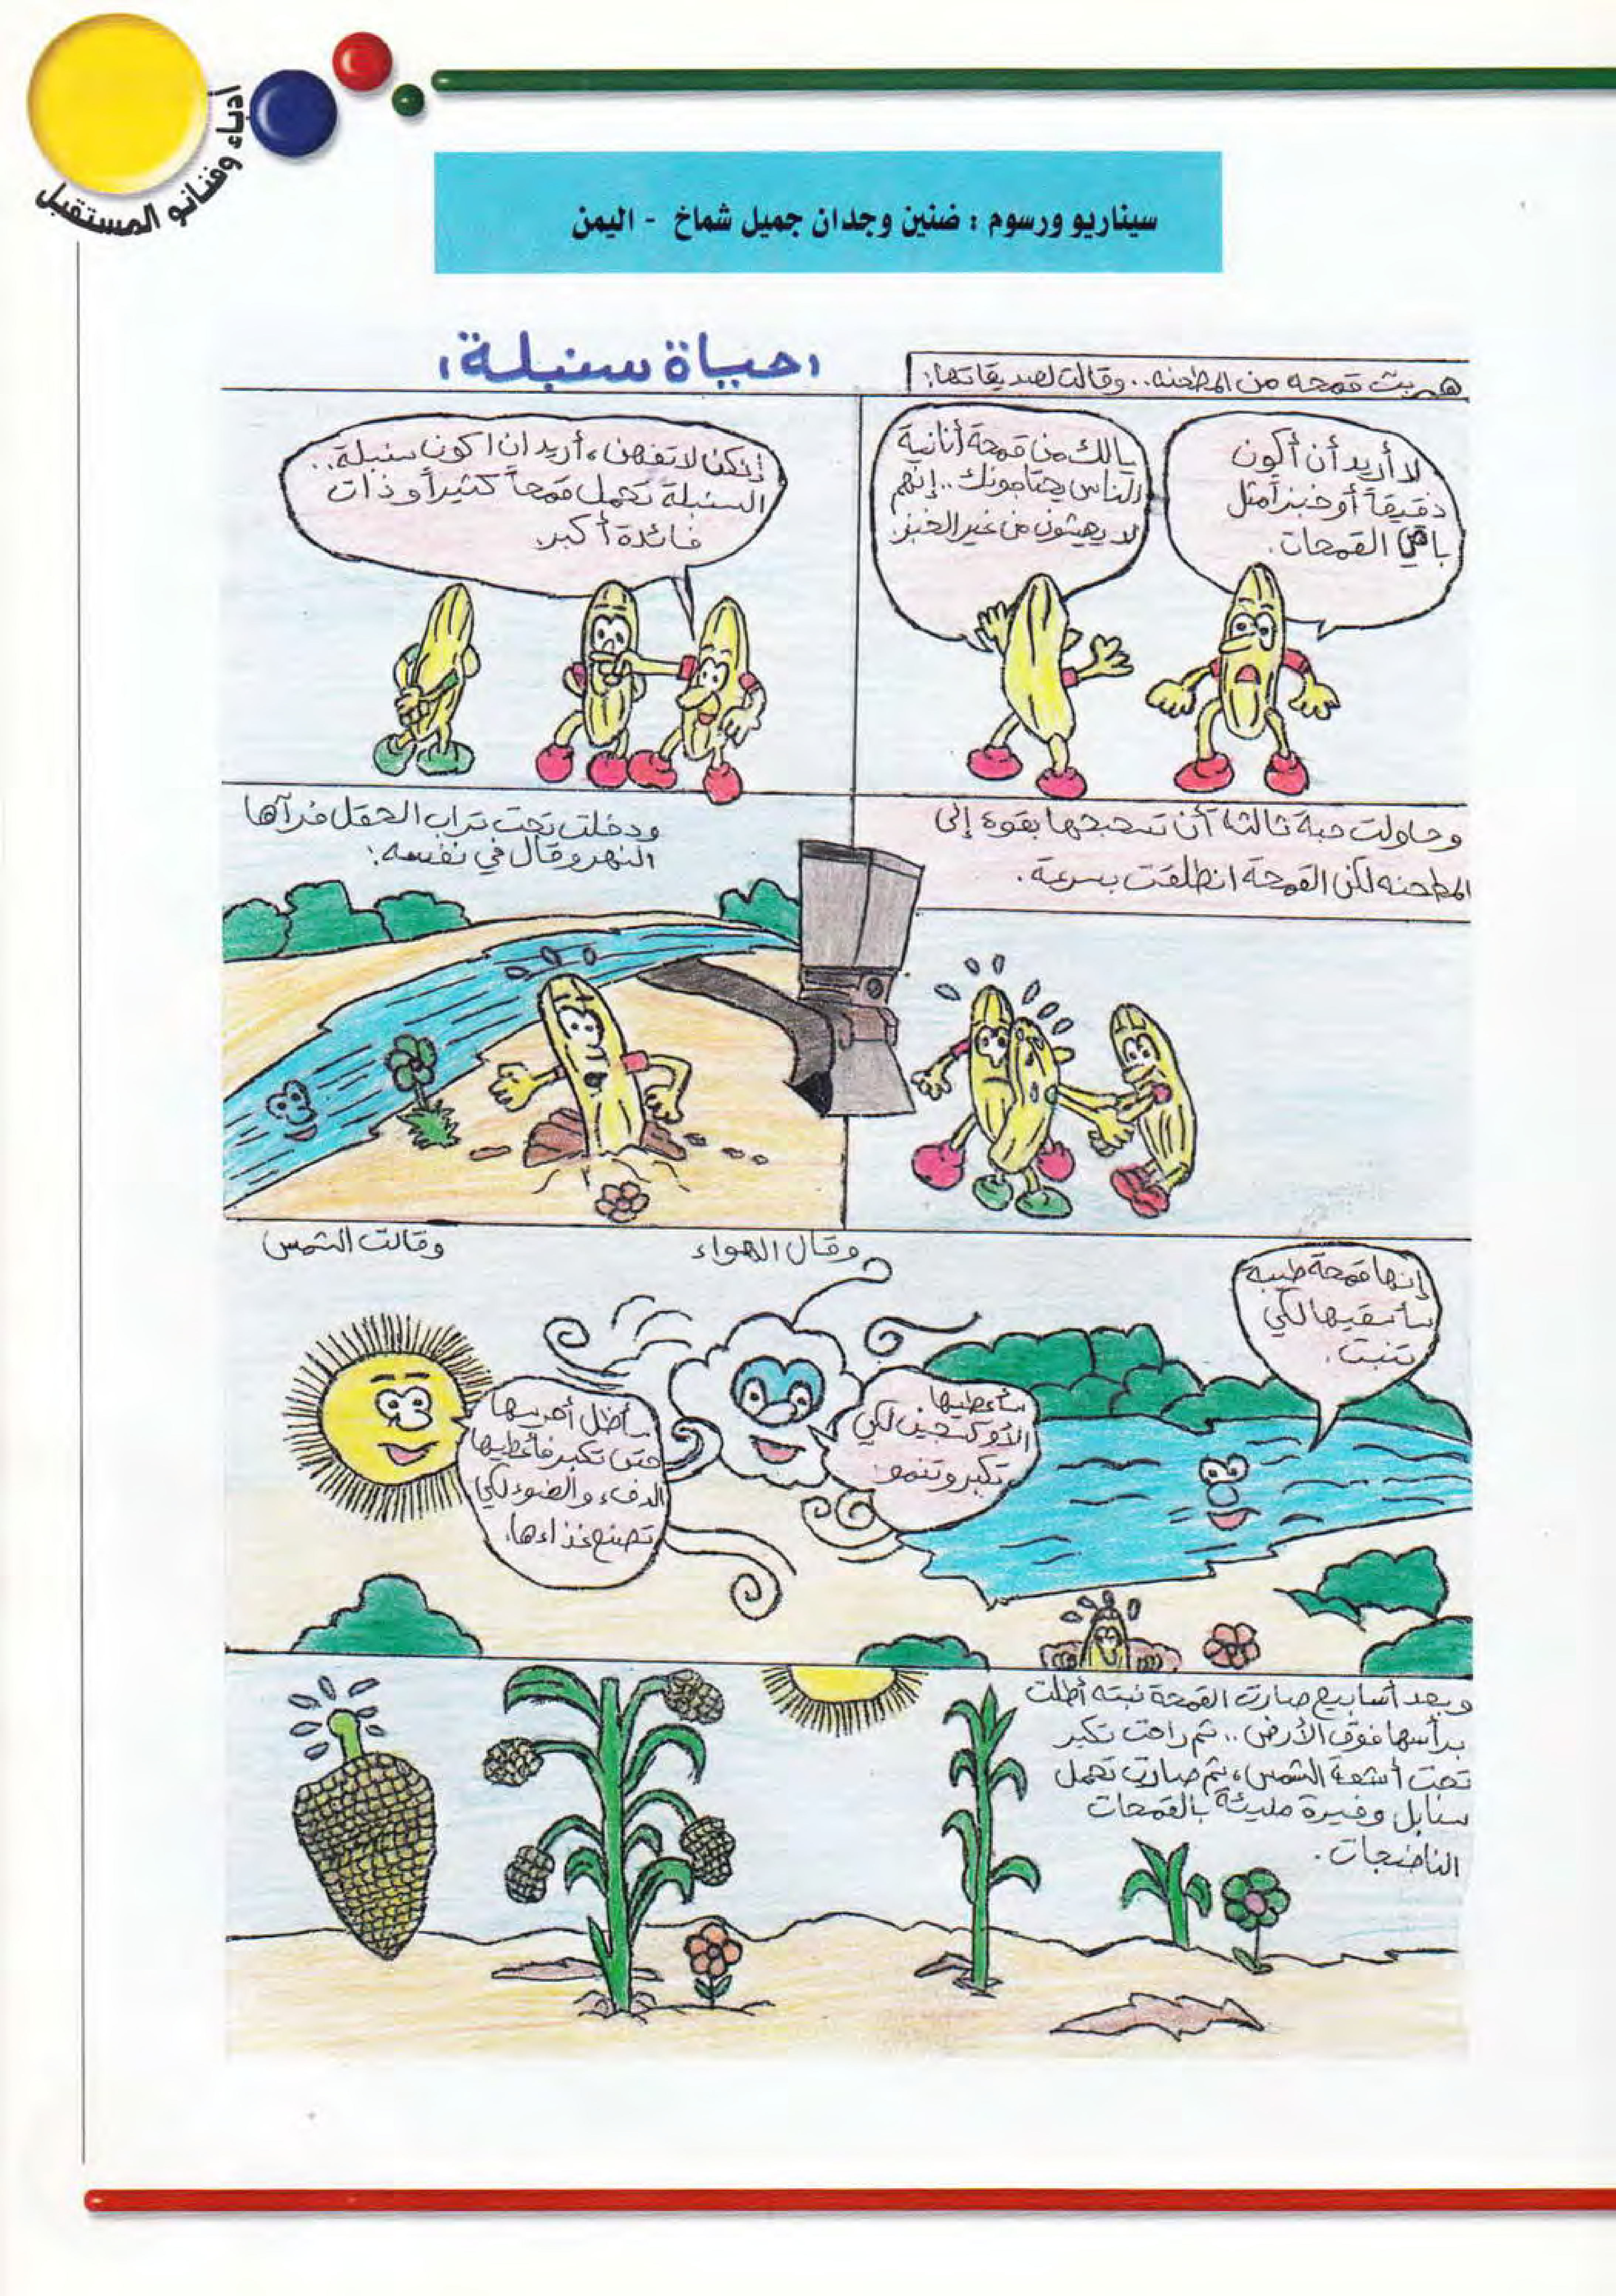 أدباء وفنانو المستقبل
سيناريو ورسوم : ضنين وجدان جميل شماخ - اليمن
،حياة سنبلة،
هربت قمحه من المطحنه.. وقالت لصديقاتها:
لا أريد أن أكون
دقيقاً أو خبزاً مثل
باقي القمحات.
يالك من قمحة أنانية
الناس يحتاجونك.. إنهم
لا يعيشون من غير الخبز.
إنكن لا تفهمن، أريد ان اكون سنبلة..
السنبلة تحمل قمحاً كثيراً وذات
فائدة أكبر.
وحاولت حبة ثالثة أن تسحبها بقوة إلى
المطحنه لكن القمحة انطلقت بسرعة.
ودخلت تحت تراب الحقل فرآها
النهر وقال في نفسه:
إنها قمحة طيبة
سأسقيها لكي
تنبت.
وقال الهواء
سأعطيها
الأوكسجين لكي
تكبر وتنمو.
وقالت الشمس
سأظل أحرسها
حتى تكبر فأعطيها
الدفء والضوء لكي
تصنع غذاءها.
وبعد أسابيع صارت القمحة نبته أطلت
برأسها فوق الأرض.. ثم راحت تكبر
تحت أشعة الشمس، ثم صارت تحمل
سنابل وفيرة مليئة بالقمحات
الناضجات.